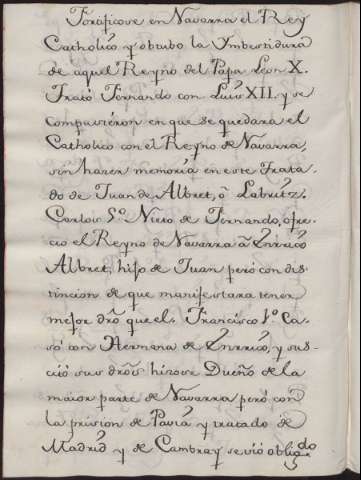 Fortificose en Navarra el Rey
Catholico y obtubo la Ymbestidura
de aquel Reyno del Papa Leon X.
Trató Fernando con Luis XII. y se
compusieron en que se quedara el
Catholico con el Reyno de Navarra,
sin hazer memoria en este trata-
do de Juan de Albret, ô Labrit.
Carlos 1º. Nieto de Fernando, ofre-
cio el Reyno de Navarra â Enrrico
Albret, hijo de Juan pero con dis-
tincion de que manifestara tener
mejor dro que el. Francisco 1º Ca-
só con Hermana de Enrrico, y su
ció sus dros hizose Dueño de la
maior parte de Navarra pero con
la prision de Paviá y tratado de
Madrid y de Cambray se vió obligdo